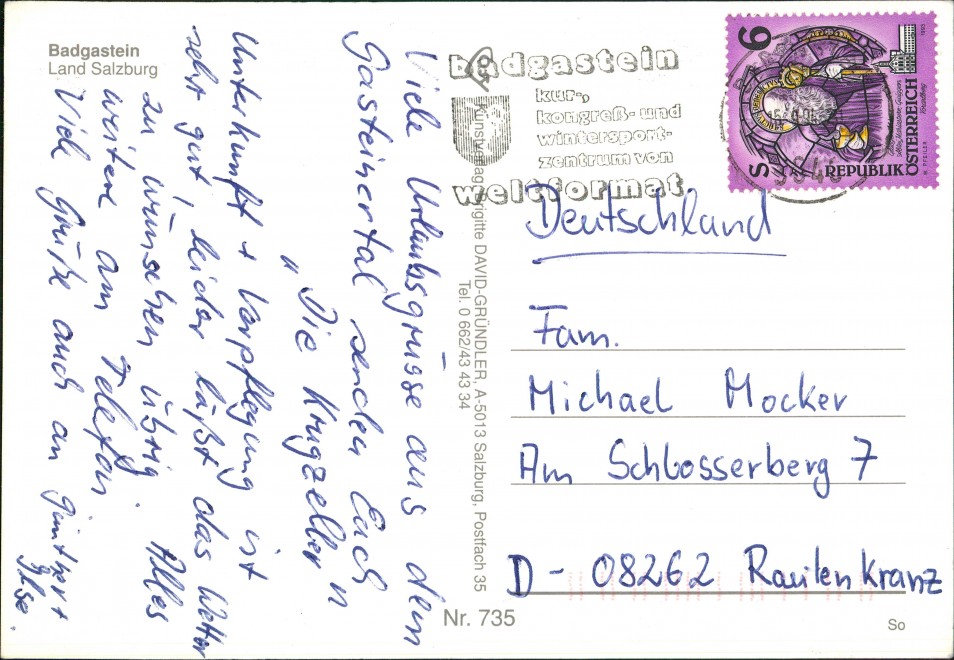 Badgastein
Land Salzburg
Viele Urlaubsgrüsse aus dem
Gasteinertal senden Euch
"Die Krugzeller"
Unterkunft + Verpflegung ist
sehr gut, leider läßt das Wetter
zu wünschen übrig. Alles
weitere am Telefon.
Viele Grüße auch an
Ilse
badgastein
kur-,
kongreß- und
wintersport-
zentrum von
weltformat
Kunstverlag Brigitte DAVID-GRÜNDLER, A-5013 Salzburg, Postfach 35
Tel. 0 662/43 43 34
Nr. 735
S 6
REPUBLIK
ÖSTERREICH
Deutschland
Fam.
Michael Mocker
Am Schlosserberg 7
D - 08262 Rautenkranz
So